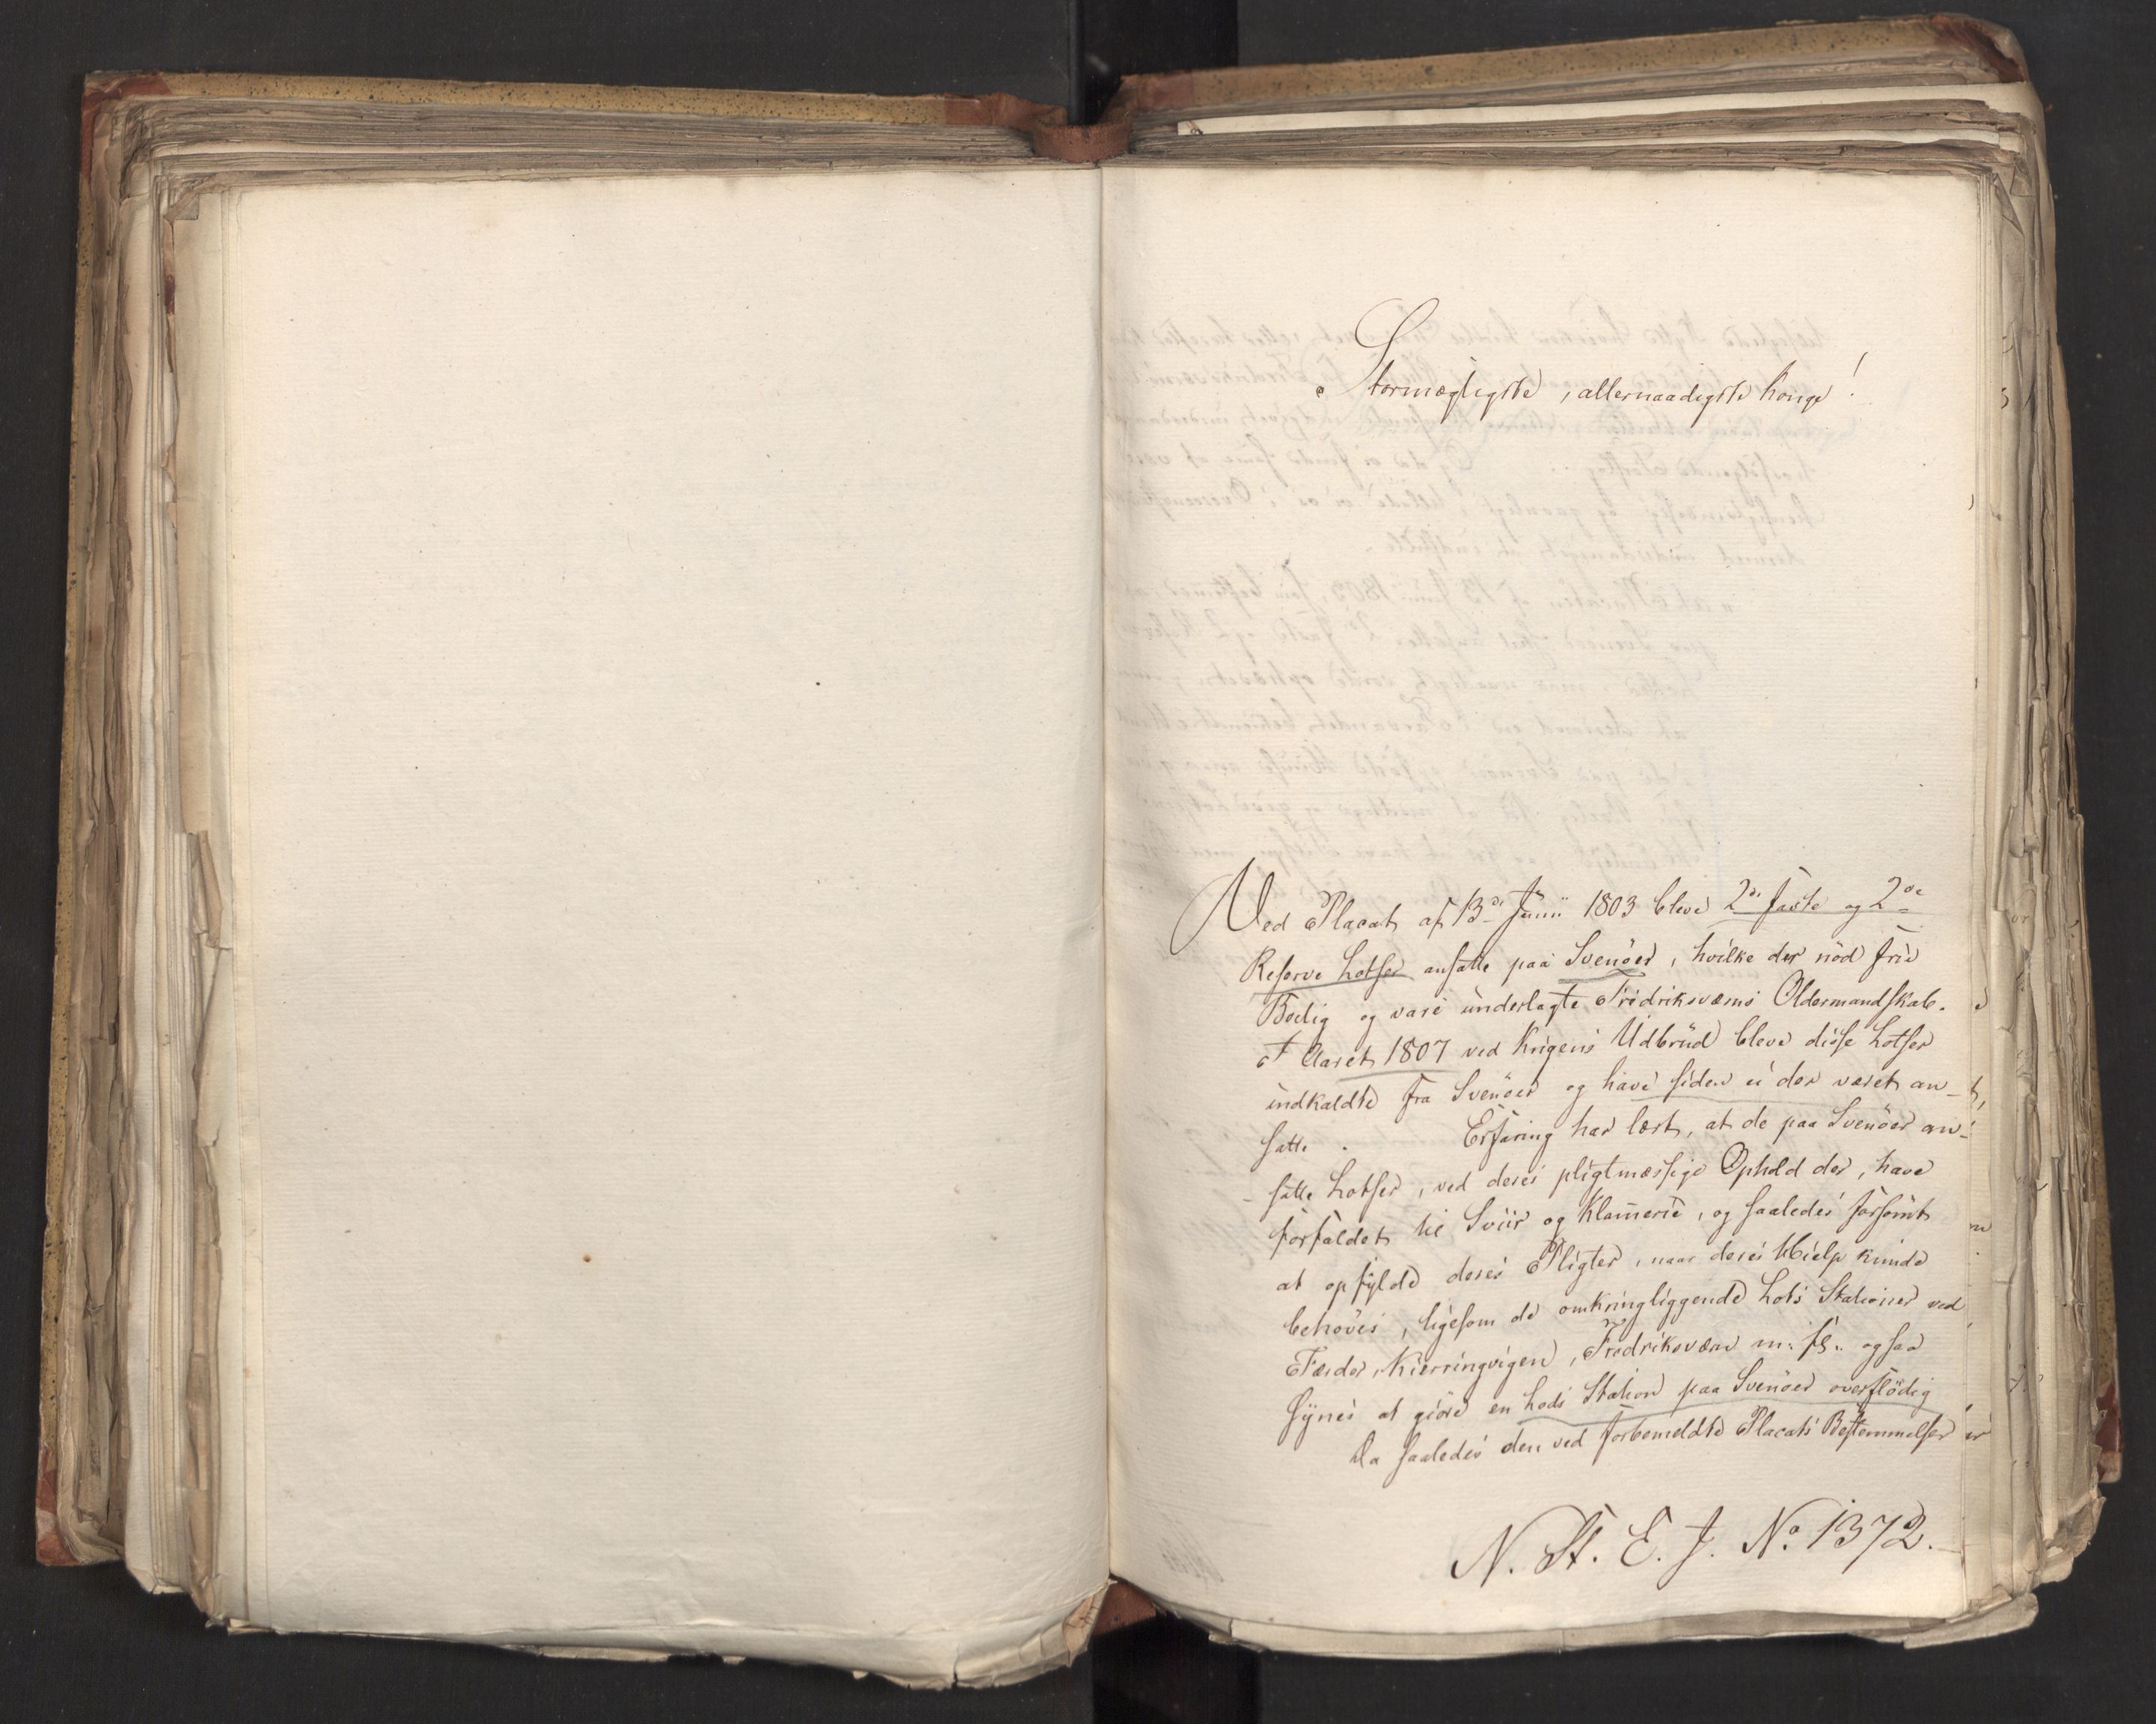 Stormægtigste, allernaadigste Konge!
Ved Placat af 13de Junii 1803 bleve 2de faste og 2de
Reserve Lotser ansatte paa Svenöer, hvilke der nöd frie
Bolig og vare underlagte Fredriksværns Oldermandskab.
I Aaret 1807 ved Krigens Udbrud bleve disse Lotser
indkaldte fra Svenöer og have siden ei der været an-
satte. Erfaring har lært, at de paa Svenöer an-
satte Lotser, ved deres pligtmæssige Ophold der, have
forfaldet til Sviir og Klammerie, og saaledes forsömt
at opfylde deres Pligter, naar deres Hielp kunde
behöves, ligesom de omkringliggende Lots Stationer ved
Færder, Kierringvigen, Fredriksværn m: fl: ogsaa
synes at giöre en Lods Station paa Svenöer overflödig
Da saaledes den ved forbemeldte Placats Bestemmelser
N. St. E. J. No 1372.